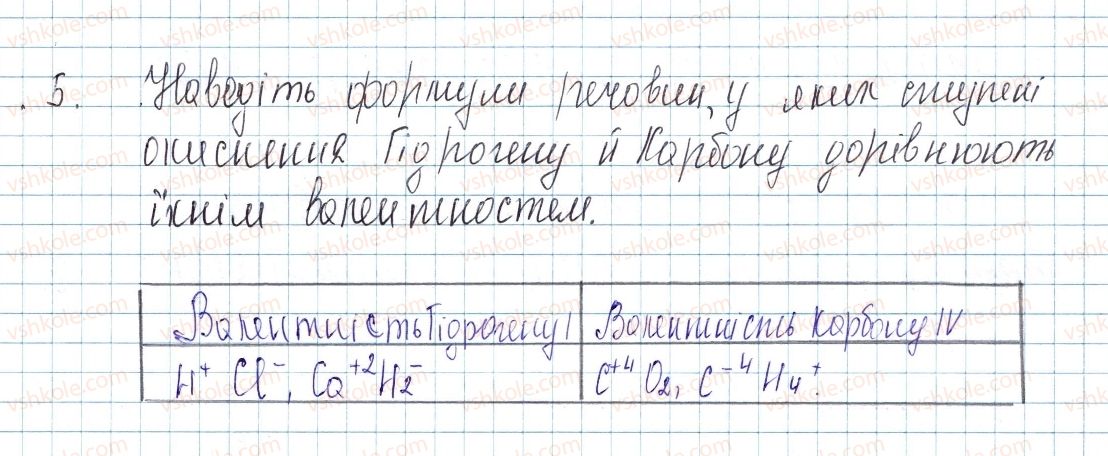 5. Наведіть формули речовин, у яких ступені
окиснення Гідрогену й Карбону дорівнюють
їхнім валентностям.
Валентність Гідрогену I | Валентність Карбону IV
H⁺Cl⁻, Ca⁺²H₂⁻ | C⁺⁴O₂, C⁻⁴H₄⁺.
vshkole.com